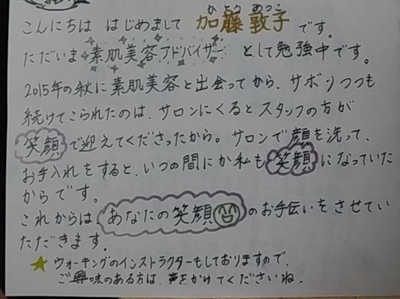 かとう あつこ
こんにちは はじめまして 加藤敦子です。
ただいま 素肌美容アドバイザー として勉強中です。
2015年の秋に素肌美容と出会ってから、サボりつつも
続けてこられたのは、サロンにくるとスタッフの方が
笑顔で迎えてくださったから。サロンで顔を洗って、
お手入れをすると、いつの間にか私も笑顔になっていた
からです。
これからは あなたの笑顔 のお手伝いをさせてい
ただきます。
★ ウォーキングのインストラクターもしておりますので、
ご興味のある方は、声をかけてくださいね。